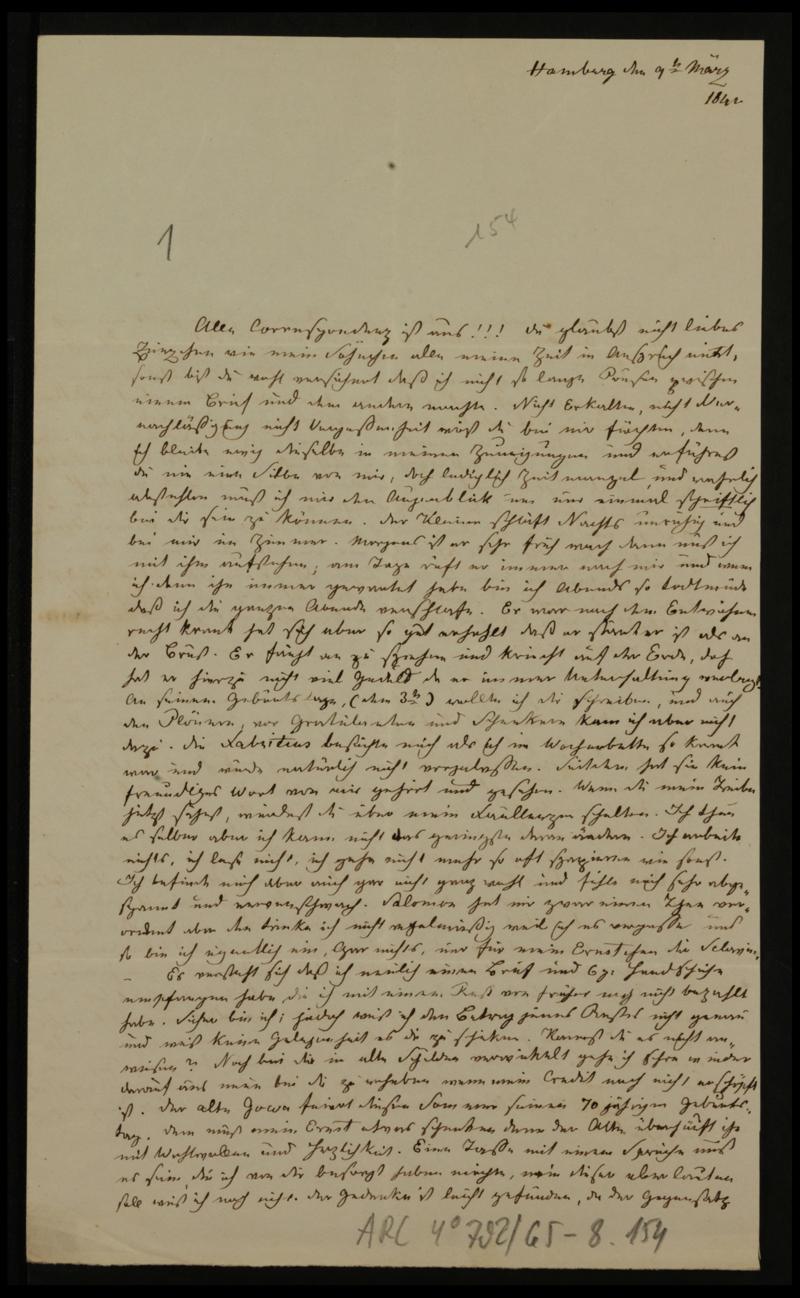 Hamburg den 9t März
184
154
1
Alle Correspondenz ist aus!!! du glaubst nicht liebes
wie mein Söhnchen alle meine Zeit in Anspruch nimt,
sonst bist du wohl versichert daß ich nicht so lange Pausen zwischen
einem Brief und dem andern machte. Nicht Erkalten, nicht Ver-
nachläßigung nicht Vergessenheit mußt du bei mir fürchten, denn
ich bleibe ewig dieselbe in meinen Zuneigungen und erführest
du nie eine Silbe von mir, doch lediglich Zeitmangel, und wahrlich
abstehlen muß ich mir den Augenblick um nur einmal schriftlich
bei dir sein zu können. Der Kleine schläft Nachts unruhig und
bei mir im Zimmer. Morgens ist er sehr früh wach dann muß ich
mit ihm aufstehen, am Tage ruft er immer nach mir und wenn
ich denn ihn immer gewartet habe bin ich Abends so todtmüde
daß ich die ganzen Abende verschlafe. Er war nach dem Entwöhnen
recht krank hat sich aber so gut erhohlt daß er stärker ist als an
der Brust. Er fängt an zu sprechen und kriecht auf der Erde, doch
hat er hierzu nicht viel Geduld da er immer Unterhaltung verlangt.
An seinem Geburtstage, (den 3t) wollte ich dir schreiben, und auch
den , vor Gratulanten und Schenkern kam ich aber nicht
dazu. Die Fabritius besuchte mich als ich im Wochenbette so krank
war und wurde natürlich nicht vorgelassen. Seitdem hat sie kein
freundliches Wort von mir gehört und gesehen. Wenn du mein Treiben
jetzt sähest, würdest du über mein Faullenzen schelten. Ich thue
es selber aber ich kann nicht das geringste daran ändern. Ich arbeite
nichts, ich lese nicht, ich gehe nicht mehr so oft spazieren wie sonst.
Ich befinde mich aber auch gar nicht ganz wohl und fühle mich sehr abge-
spannt und nervenschwach. Salomon hat mir zwar einen Thee ver-
ordnet aber den trinke ich nicht regelmäßig weil ich es vergesse und
so bin ich eigentlich ein, Gar nichts, nur für mein Ernstchen die Sclavin.
– Es versteht sich daß ich neulich einen Brief und 6 p: Handschuhe
empfangen habe, die ich mit einem Rest von früher noch nicht bezahlt
habe. Sicher bin ich; jedoch weiß ich den Betrag jenes Restes nicht genau
und weiß keine Gelegenheit es dir zu schicken. Kannst du es nicht an-
weisen? Noch bei dir in alte Schulden verwickelt gehe ich schon wieder
darauf aus neue bei dir zu erheben wenn mein Credit noch nicht erschöpft
ist. Der alte feiert diesen Sommer seinen 70 jährigen Geburts-
tag. dem muß mein Ernst etwas schenken denn der Alte überhäuft ihn
mit Wohlwollen und Herzlichkeit. Eine Tasse mit einem Spruche muß
es sein, die ich von dir besorgt haben möchte, wie dieser aber lauten
soll weiß ich noch nicht. der Gedanke ist leicht gefunden, da der Gegensatz
ARC 4° 792/65-8.154